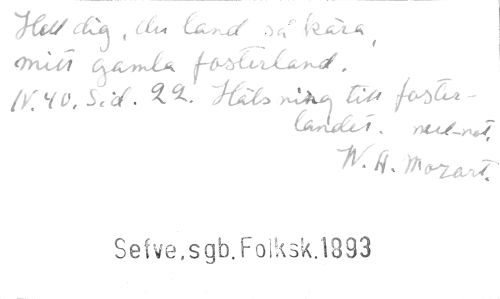 Hell dig, du land så kära,
mitt gamla fosterland.
N. 40. Sid. 22. Hälsning till foster-
landet. mel-not.
W. A. Mozart.
Sefve,sgb.Folksk.1893